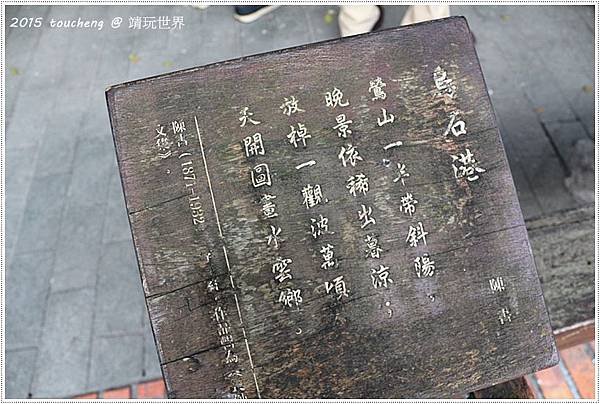 2015 toucheng @ 靖玩世界
烏石港
陳書
鶯山一半帶斜陽，
晚景依稀出暮涼；
放棹一觀波萬頃，
天開圖畫水雲鄉。
陳書（1877-1932
文學》。